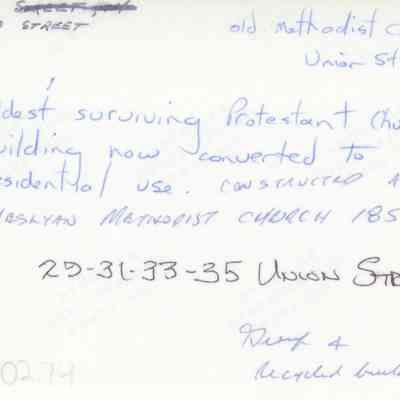 STREET
old Methodist C
Union St
ldest surviving Protestant Chu
uilding now converted to
esidential use. CONSTRUCTED A
WESLYAN METHODIST CHURCH 185
29-31-33-35 UNION STR
Recycled
02.74